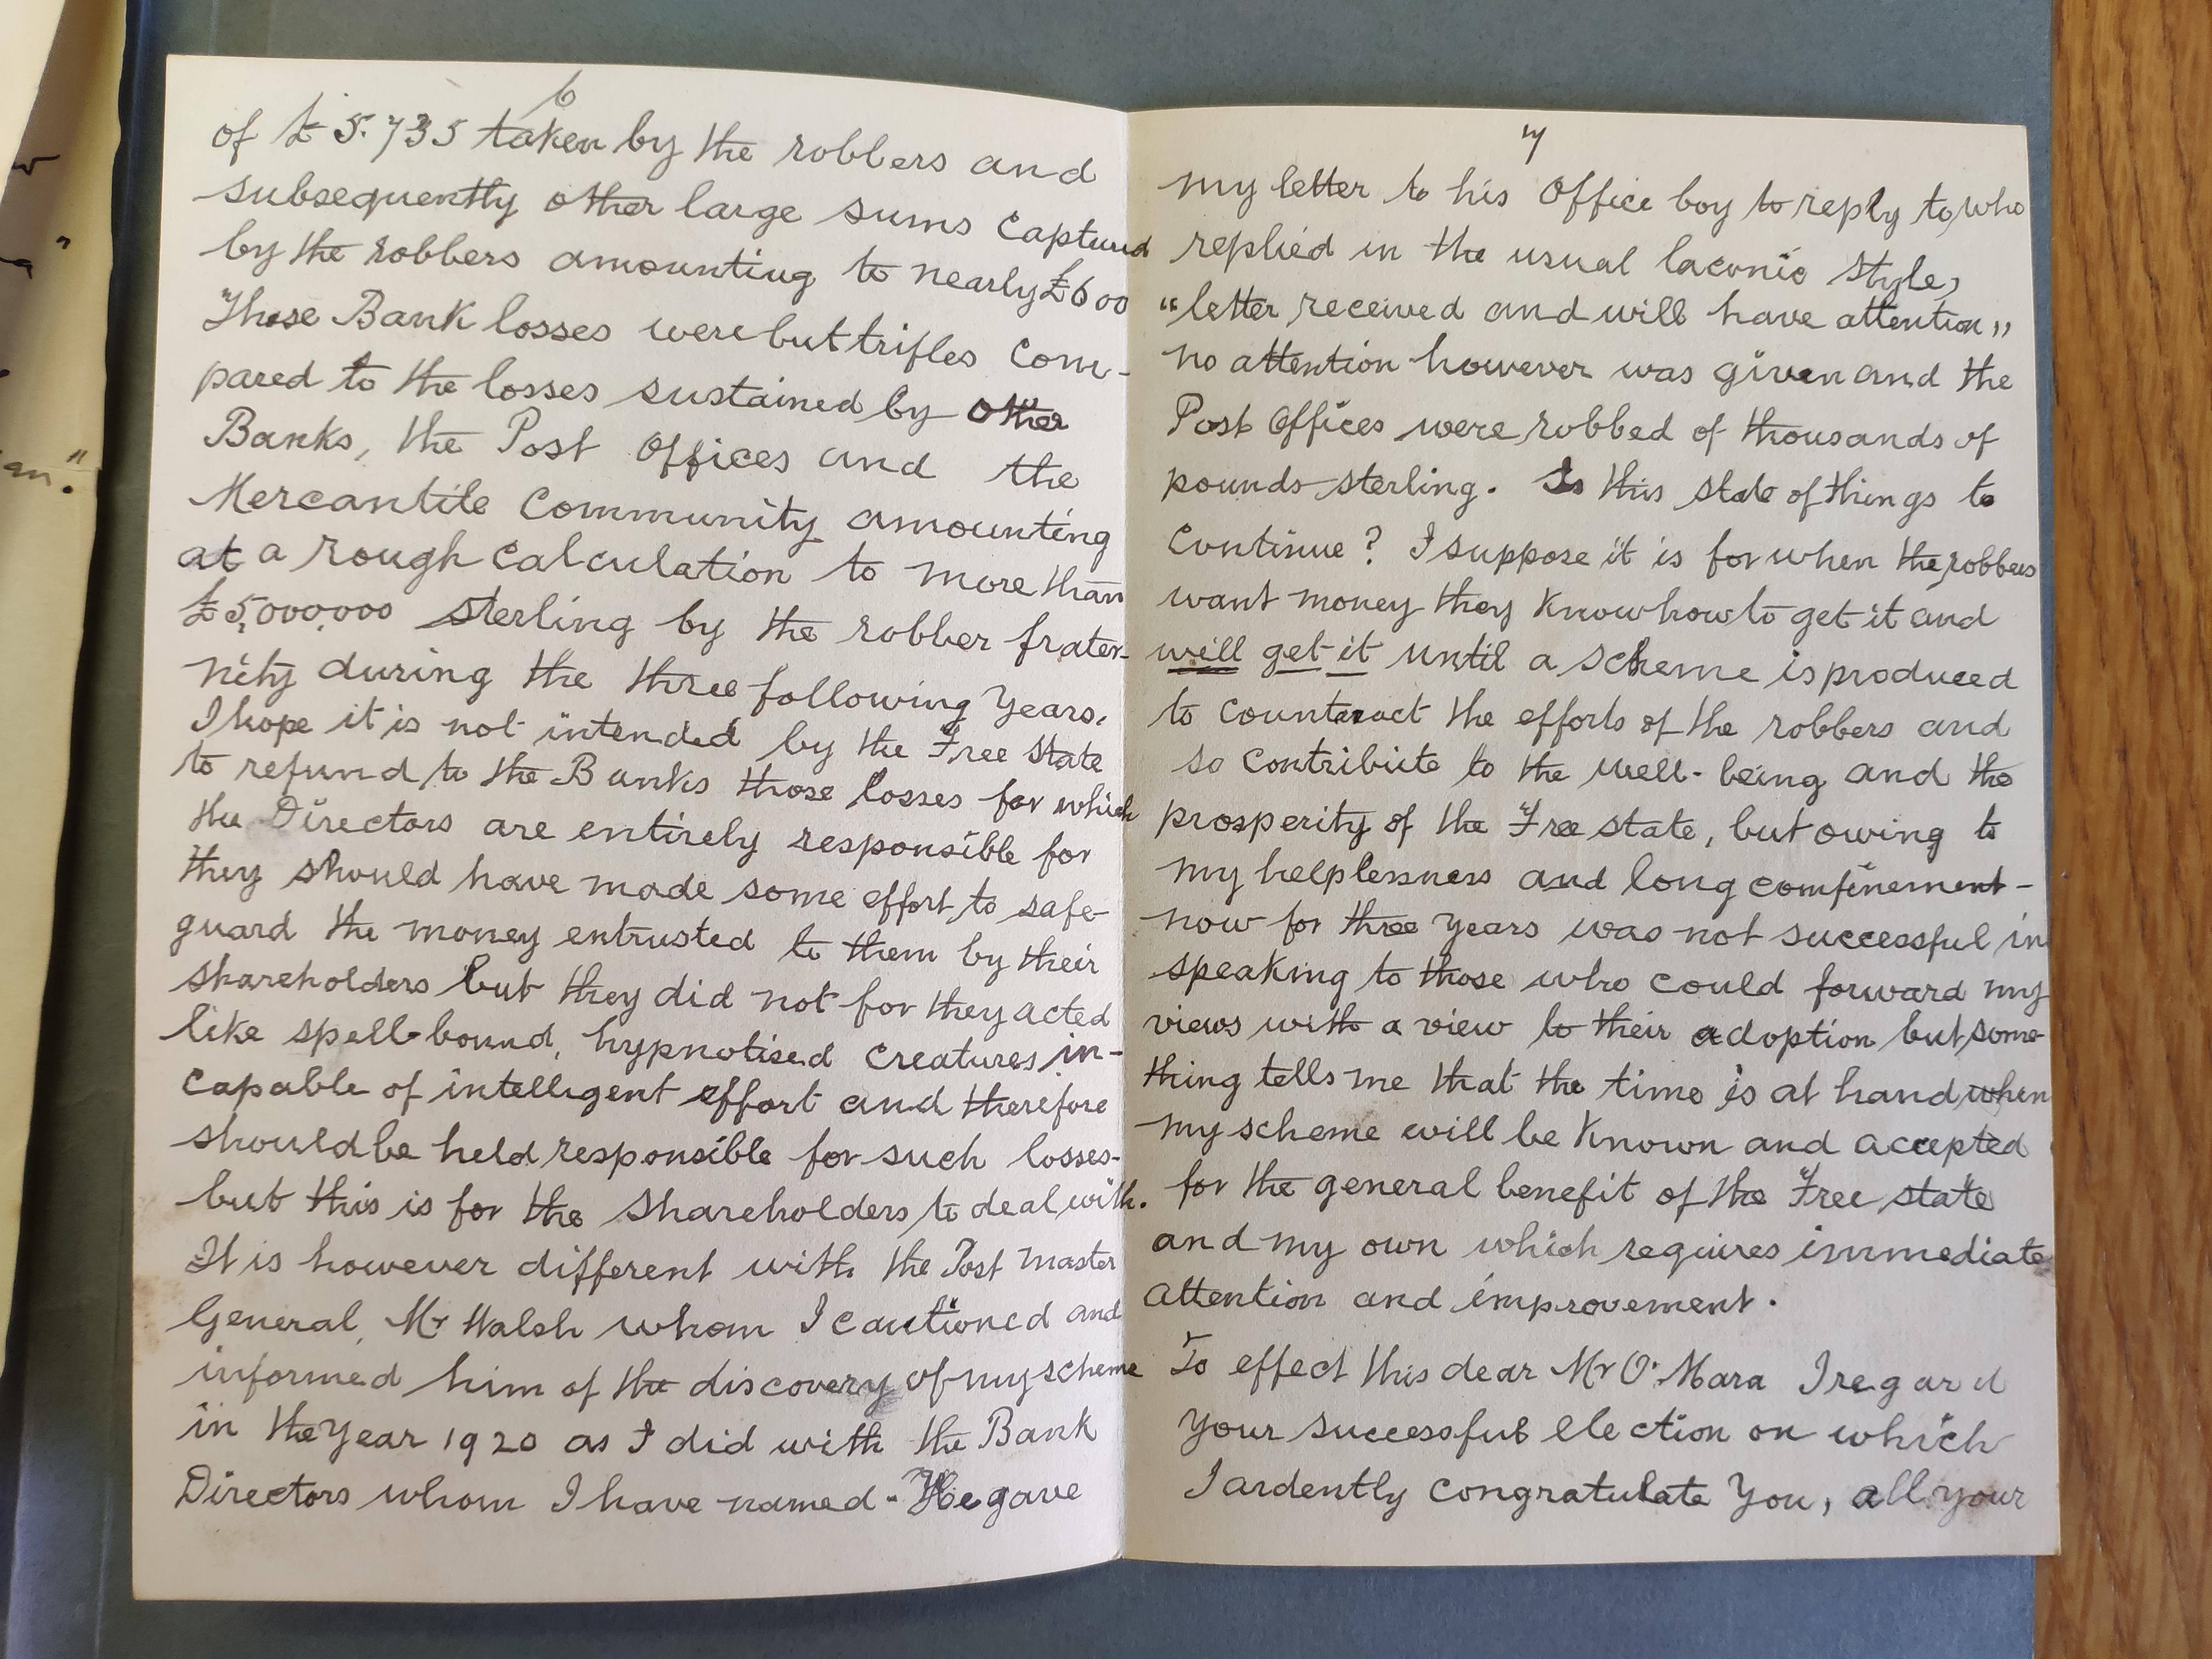 6
of £5.735 taken by the robbers and
subsequently other large sums captured
by the robbers amounting to nearly £600
These Bank losses were but trifles com-
pared to the losses sustained by other
Banks, the Post Offices and the
Mercantile Community amounting
at a rough calculation to more than
£5,000,000 sterling by the robber frater-
nity during the three following Years.
I hope it is not intended by the Free State
to refund to the Banks those losses for which
the Directors are entirely responsible for
they should have made some effort to safe-
guard the money entrusted to them by their
shareholders but they did not for they acted
like spell-bound, hypnotised creatures in-
capable of intelligent effort and therefore
should be held responsible for such losses-
but this is for the Shareholders to deal with.
It is however different with the Post Master
General, Mr Walsh whom I cautioned and
informed him of the discovery of my scheme
in the Year 1920 as I did with the Bank
Directors whom I have named - He gave
7
my letter to his Office boy to reply to, who
replied in the usual laconic style,
"letter received and will have attention"
no attention however was given and the
Post Offices were robbed of thousands of
pounds sterling. Is this state of things to
continue? I suppose it is for when the robbers
want money they know how to get it and
will get it until a scheme is produced
to counteract the efforts of the robbers and
so contribute to the well-being and the
prosperity of the Free State, but owing to
my helplessness and long confinement -
now for three Years was not successful in
speaking to those who could forward my
views with a view to their adoption but some-
thing tells me that the time is at hand when
my scheme will be known and accepted
for the general benefit of the Free State
and my own which requires immediate
attention and improvement.
To effect this dear Mr O'Mara I regard
your successful election on which
I ardently congratulate You, all your
an."